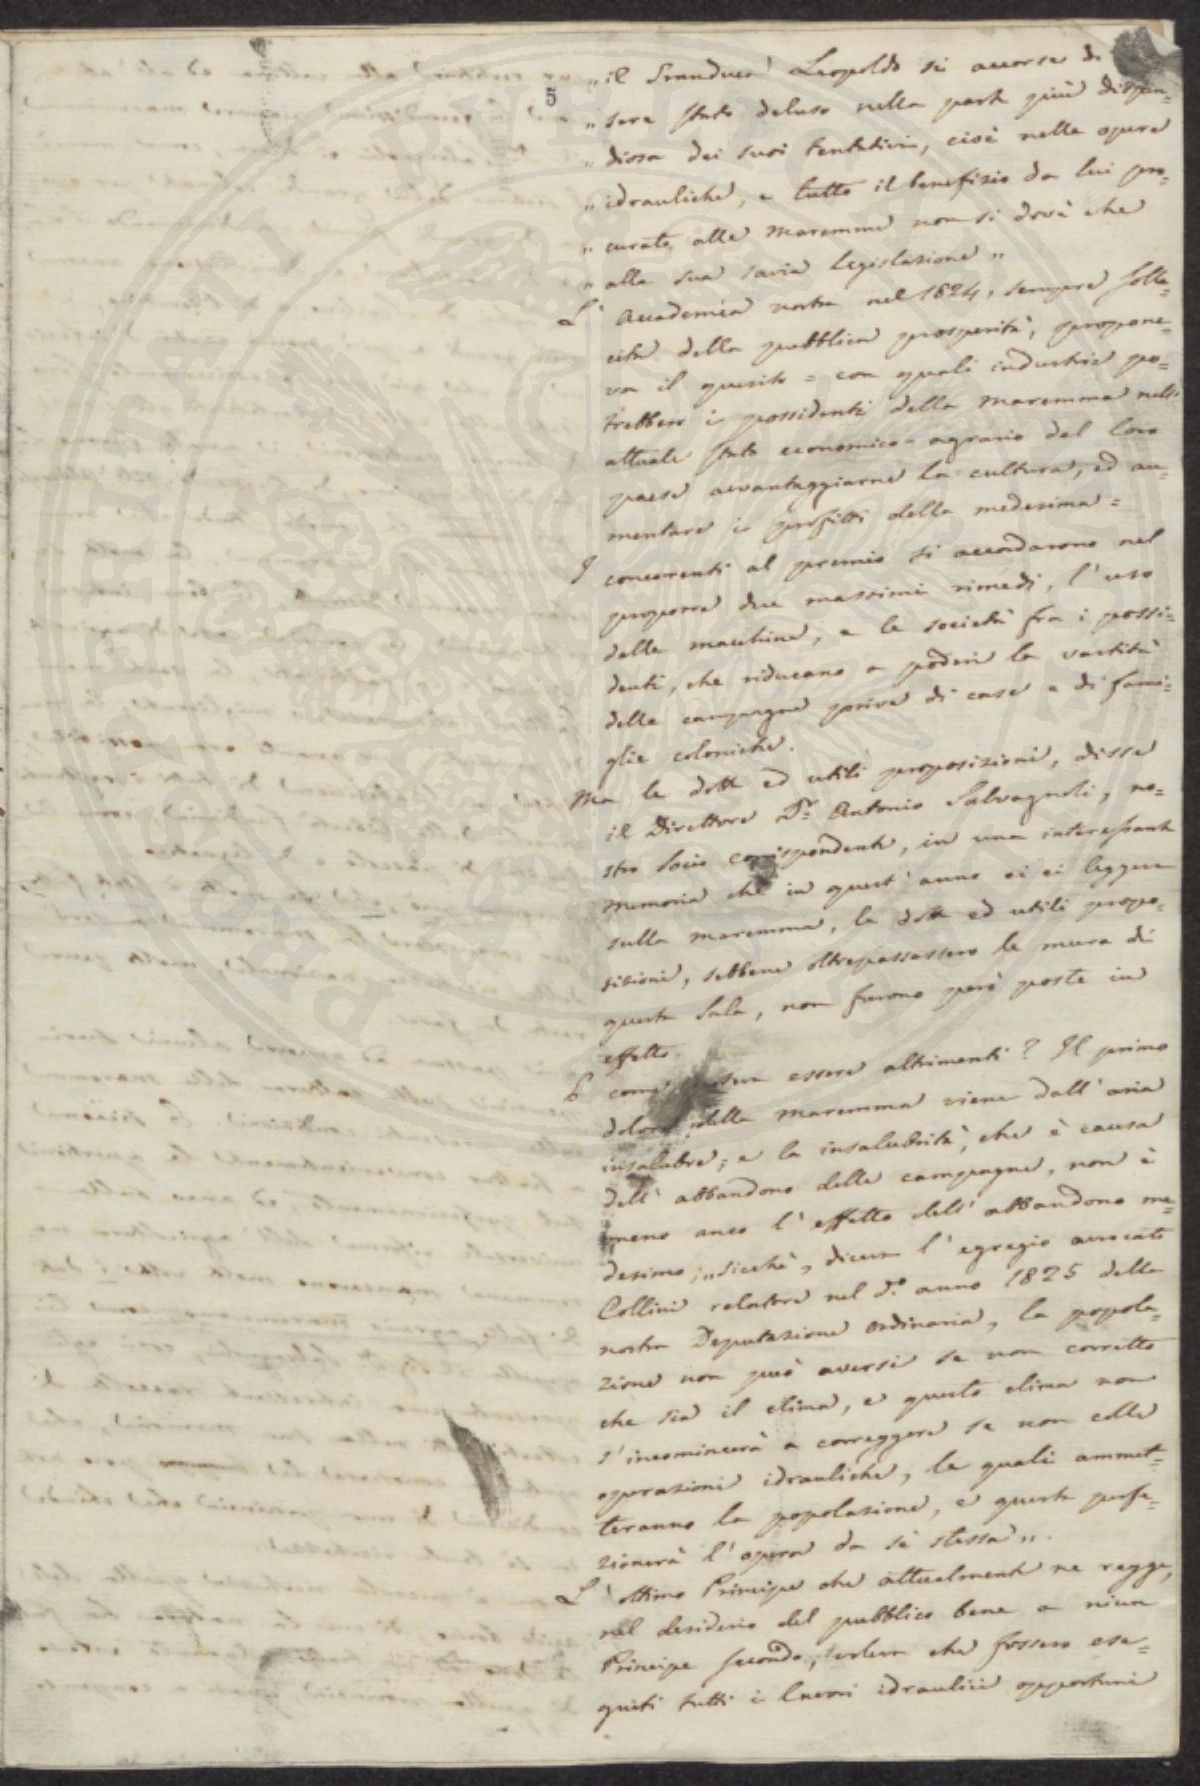 5
„ il Granduca Leopoldo si accorse di
„ sere stato deluso nella parte più dispen=
„ diosa dei suoi tentativi, cioè nelle opere
„ idrauliche, e tutto il benefizio da lui pro=
„ curato alle maremme non si dovè che
„ alla sua savia legislazione „
L' Accademia nostra nel 1824, sempre solle=
cita della pubblica prosperità, propone=
va il quesito = con quali industrie po=
trebbero i possidenti della maremma nello
attuale stato economico-agrario del loro
paese avvantaggiarne la cultura, ed au=
mentare i profitti della medesima =
I concorrenti al premio si accordarono nel
proporre due massimi rimedi, l'uso
delle macchine, e le società fra i possi=
denti, che riducano a poderi la vastità
delle campagne prive di case e di fami=
glie coloniche.
Ma le dotte ed utili proposizioni, disse
il Direttore D.r Antonio Salvagnoli, no=
stro Socio corrispondente, in una interessante
memoria che in quest'anno ei ci leggeva
sulla maremma, le dotte ed utili propo=
sizioni, sebbene oltrepassassero le mura di
questa Sala, non furono però poste in
effetto.
E come essere altrimenti? Il primo
dolore della maremma viene dall'aria
insalubre; e la insalubrità, che è causa
dell'abbandono delle campagne, non è
meno anco l'effetto dell'abbandono me=
desimo; „ sicchè, diceva l'egregio avvocato
Collini relatore nel d.o anno 1825 della
nostra Deputazione ordinaria, la popola=
zione non può aversi se non corretto
che sia il clima, e questo clima non
s'incomincerà a correggere se non colle
operazioni idrauliche, le quali ammet=
teranno la popolazione, e questa perfe=
zionerà l'opera da sè stessa „.
L'ottimo Principe che attualmente ne regge,
nel desiderio del pubblico bene a niun
Principe secondo, voleva che fossero ese=
guiti tutti i lavori idraulici opportuni